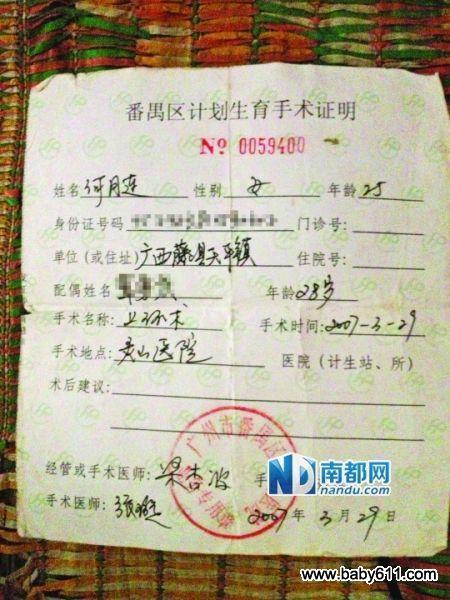 番禺区计划生育手术证明
№ 0059400
姓名 何月连 性别 女 年龄 25
身份证号码 门诊号:
单位(或住址) 广西藤县天平镇 住院号:
配偶姓名 年龄 28岁
手术名称: 上环术 手术时间: 2007-3-29
手术地点: 医院 医院(计生站、所)
术后建议:
广州市番禺区
专用章
经管或手术医师: 梁杏波 手
南都网
nandu.com
手术医师: 张
2007年3月29日
www.baby611.com